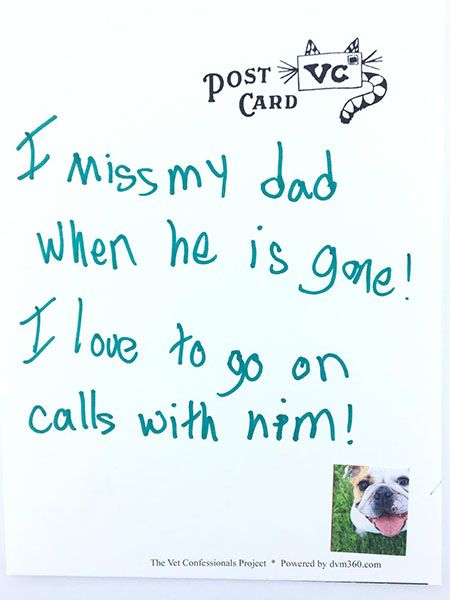 POST CARD
VC
I miss my dad
when he is gone!
I love to go on
calls with him!
The Vet Confessionals Project * Powered by dvm360.com